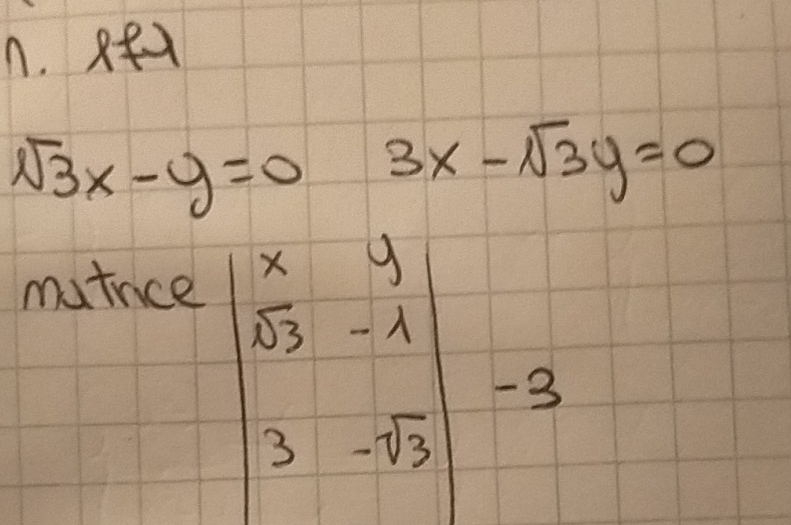 √3x - y = 0 3x - √3y = 0
matrice x y
√3 -1
-3
3 -√3